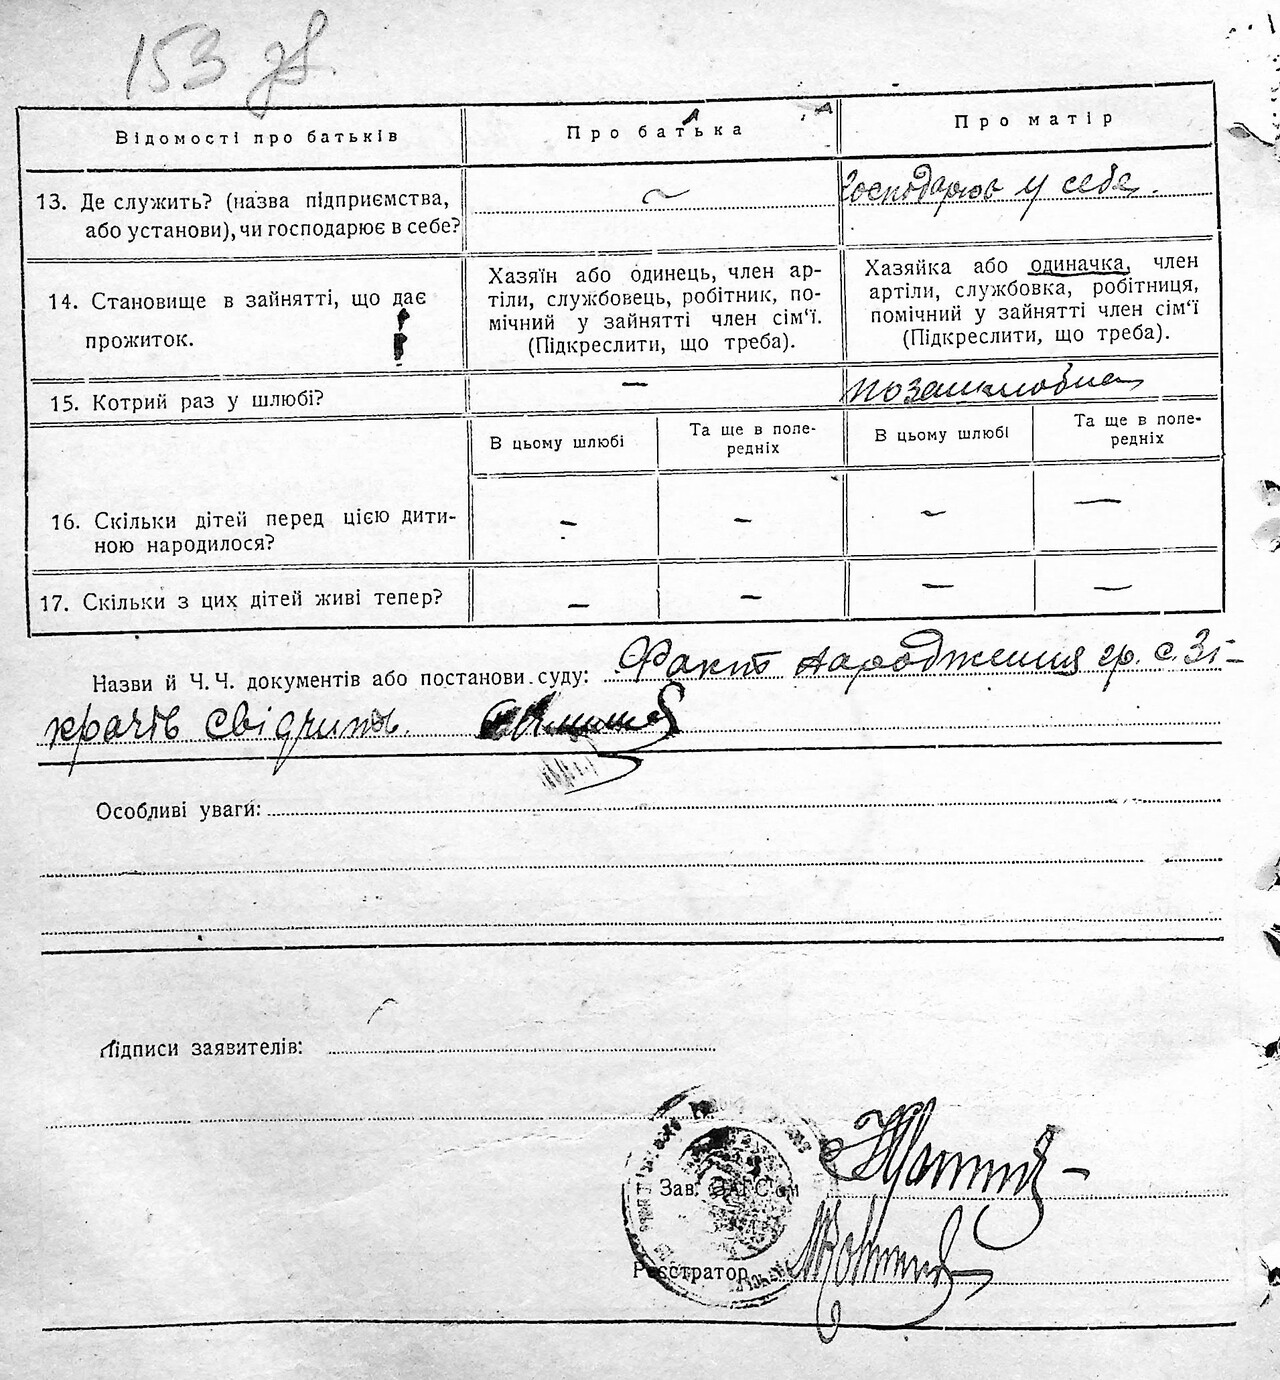 153 зв.
Відомості про батьків
Про батька
Про матір
13. Де служить? (назва підприємства,
або установи), чи господарює в себе?
~
Господарює у себе.
14. Становище в зайнятті, що дає
прожиток.
Хазяїн або одинець, член ар-
тіли, службовець, робітник, по-
мічний у зайнятті член сім'ї.
(Підкреслити, що треба).
Хазяйка або одиначка, член
артіли, службовка, робітниця,
помічний у зайнятті член сім'ї
(Підкреслити, що треба).
15. Котрий раз у шлюбі?
—
позашлюбна
В цьому шлюбі
Та ще в попе-
редніх
В цьому шлюбі
Та ще в попе-
редніх
16. Скільки дітей перед цією дити-
ною народилося?
— — — —
17. Скільки з цих дітей живі тепер?
— — — —
Назви й Ч. Ч. документів або постанови суду: Факт народження гр. с. Зі-
храчів свідчить.
Особливі уваги:
Підписи заявителів:
Зав. ЗАГС'ом
Реєстратор